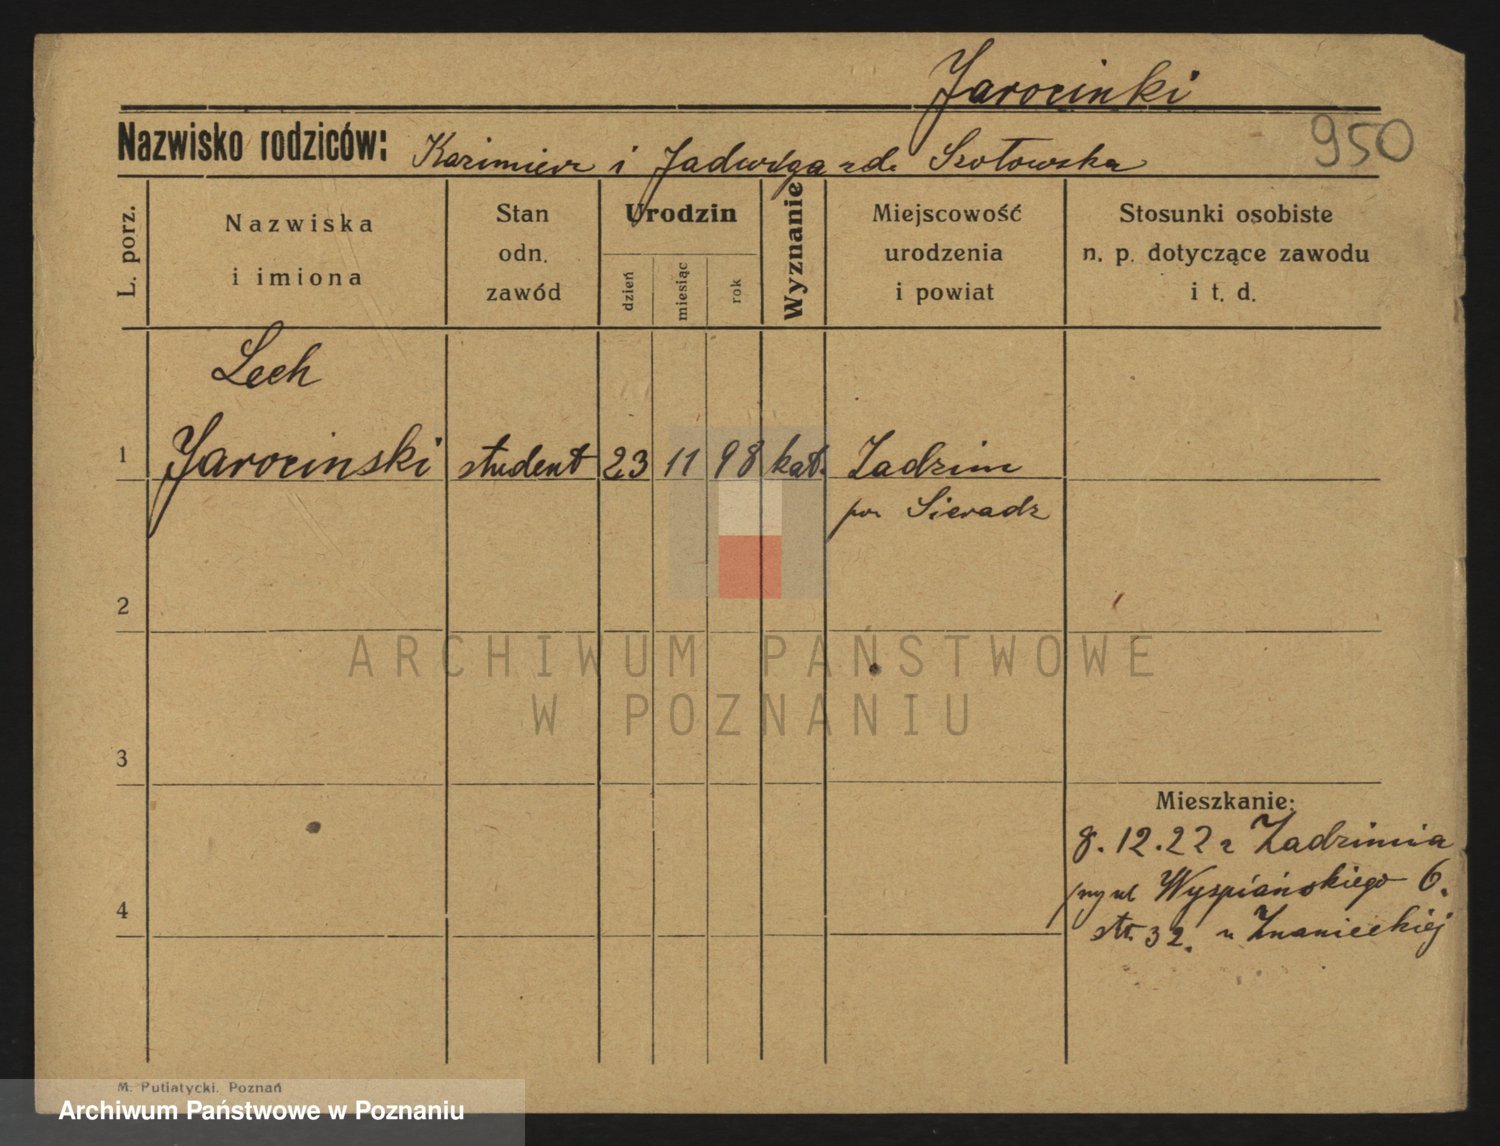 Jarocinki
950
Nazwisko rodziców: Kazimierz i Jadwiga zd. Szołowska
L. porz.
Nazwiska
i imiona
Stan
odn.
zawód
Urodzin
dzień
miesiąc
rok
Wyznanie
Miejscowość
urodzenia
i powiat
Stosunki osobiste
n. p. dotyczące zawodu
i t. d.
Lech
1 Jarocinski student 23 11 98 kat. Zadzim
pow Sieradz
2
ARCHIWUM PAŃSTWOWE
W POZNANIU
3
Mieszkanie:
8.12.22 z Zadzimia
Wyspiańskiego 6.
4
str. 32. u Znanieckiej
M. Putiatycki. Poznań
Archiwum Państwowe w Poznaniu